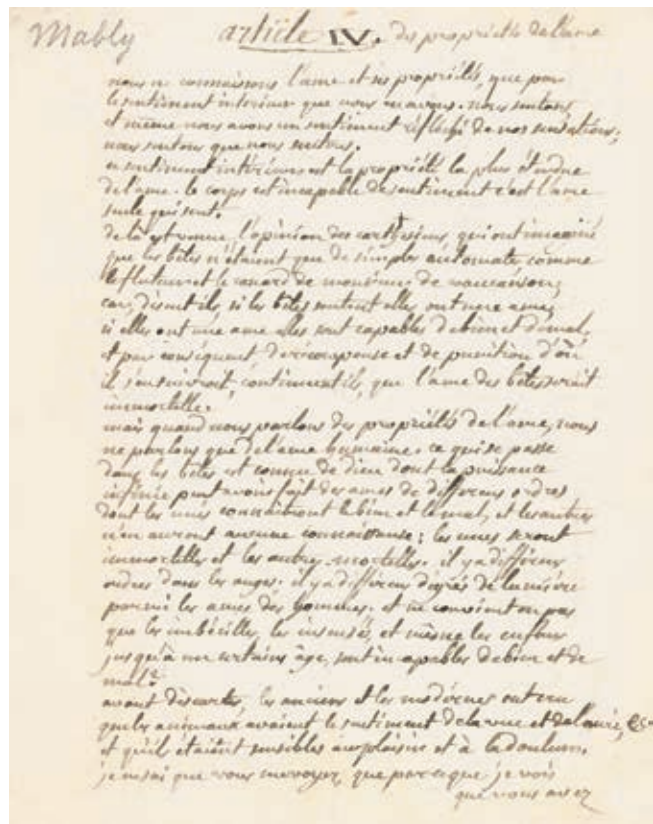 Mably
article IV. des propriétés de l'ame
nous ne connaissons l'ame et ses propriétés, que par
le sentiment intérieur que nous en avons. nous sentons,
et même nous avons un sentiment réfléchi de nos sensations;
nous sentons que nous sentons.
ce sentiment intérieur est la propriété la plus étendue
de l'ame. le corps est incapable de sentiment c'est l'ame
seule qui sent.
de là est venue l'opinion des cartésiens, qui ont imaginé
que les bêtes n'étaient que de simples automates comme
le fluteur et le canard de monsieur de vaucanson;
car, disent ils, si les bêtes sentent elles ont une ame;
si elles ont une ame elles sont capables de bien et de mal,
et par conséquent de récompense et de punition d'où
il s'ensuivrait, continuent ils, que l'ame des bêtes serait
immortelle.
mais quand nous parlons des propriétés de l'ame, nous
ne parlons que de l'ame humaine. ce qui se passe
dans les bêtes est connu de dieu dont la puissance
infinie peut avoir fait des ames de différens ordres
dont les unes connaitront le bien et le mal, et les autres
n'en auront aucune connaissance; les unes seront
immortelles et les autres mortelles. il y a différens
ordres dans les anges. il y a différens degrés de lumière
parmi les ames des hommes. et ne convient on pas
que les imbécilles, les insensés, et même les enfans
jusqu'à un certains âge, sont incapables de bien et de
mal?
avant descartes, les anciens et les modernes ont cru
que les animaux avaient le sentiment de la vue et de l'ouie, &c.
et qu'ils etaient sensibles au plaisir et à la douleur.
je ne sai que vous me voyez, que parceque je vois
que vous avez